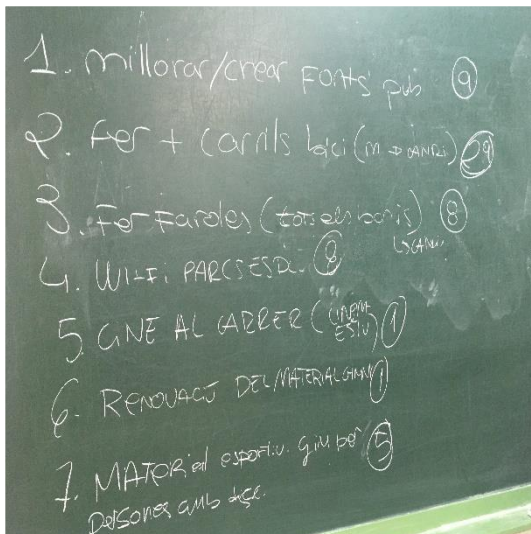 1. millorar/crear Fonts pub 9
2. Fer + carrils bici (m → 
3. Fer Faroles (tots els barris) 8
4. WI-FI PARCS ESDE.
5. CINE AL CARRER (CINEMA ESTIU) 1
6. RENOVACIÓ DEL MATERIAL GIMN 1
7. MATERial esportiu gim per 5
Persones amb disc.